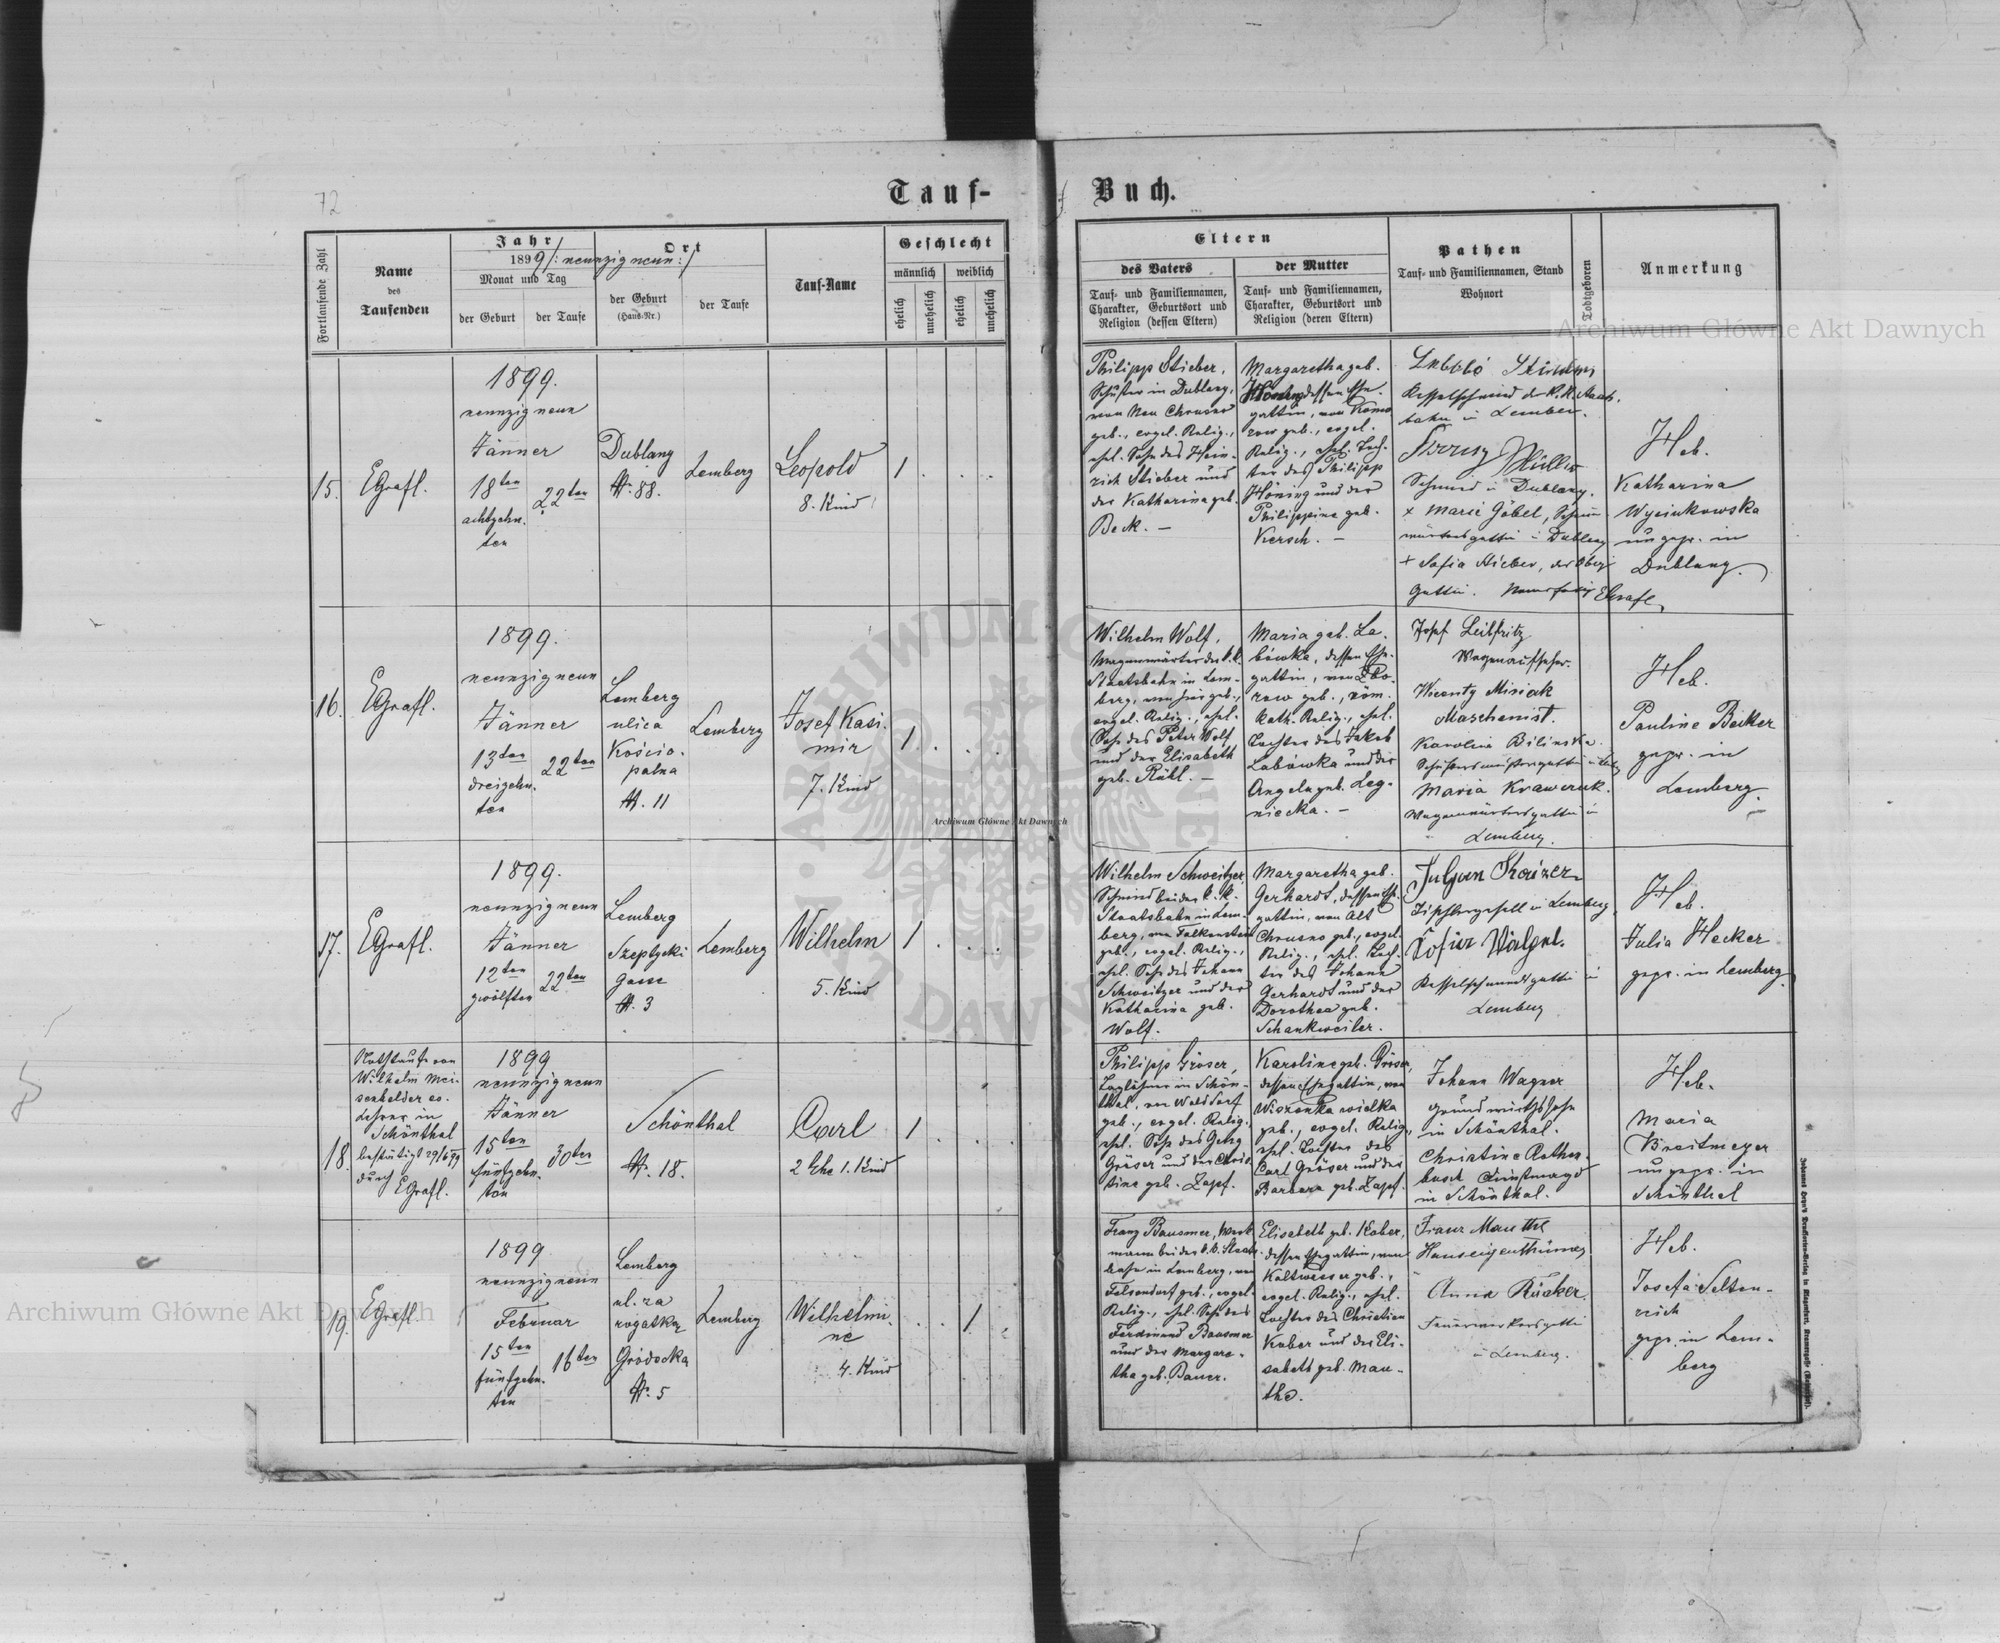 72
Tauf-
Buch.
Fortlaufende Zahl
Name
des
Taufenden
Jahr
1899 /: neunzig neun :/
Monat und Tag
der Geburt
der Taufe
Ort
der Geburt
(Haus-Nr.)
der Taufe
Tauf-Name
Geschlecht
männlich
weiblich
ehelich
unehelich
ehelich
unehelich
Eltern
des Vaters
Tauf- und Familiennamen,
Charakter, Geburtsort und
Religion (dessen Eltern)
der Mutter
Tauf- und Familiennamen,
Charakter, Geburtsort und
Religion (deren Eltern)
Pathen
Tauf- und Familiennamen, Stand
Wohnort
Todtgeboren
Anmerkung
15.
EGrafl.
1899.
neunzig neun
Jänner
18ten
achtzehn.
ten
22ten
Dublany
№ 88.
Lemberg
Leopold
8. Kind
1
Philipp Stieber,
Schuster in Dublany,
von Neu Chrusno
geb., evgel. Relig.,
ehl. Sohn des Hein-
rich Stieber und
der Katharina geb.
Beck. —
Margaretha geb.
dessen Ehe-
gattin, von
row geb., evgel.
Relig., ehel. Toch-
ter des Philipp
Höning und der
Philippine geb.
Kersch. —
Kesselschmied der k. k. Staats-
bahn in Lemberg.
Müller
Schmied in Dublany.
+ Marie Göbel,
wärtersgattin in Dublany
+ Sofia Stieber, der Obigen
Gattin.
EGrafl.
Heb.
Katharina
Wysinkowska
ungepr. in
Dublany.
16.
EGrafl.
1899.
neunzig neun
Jänner
13ten
dreizehn.
ten
22ten
Lemberg
ulica
Kościo.
palna
№. 11
Lemberg
Josef Kasi.
mir
7. Kind
1
Wilhelm Wolf,
Wagenwärter der k. k.
Staatsbahn in Lem-
berg, von hier geb.,
evgel. Relig., ehel.
Sohn des Peter Wolf
und der Elisabeth
geb. Röhl. —
Maria geb. La-
bówka, dessen Ehe-
gattin, von Zbo-
row geb., röm.
kath. Relig., ehel.
Tochter des Jakob
Labówka und der
Angela geb. Leg-
niecka. —
Josef Leibfritz
Wagenaufseher.
Wicenty Misiak
Maschenist.
Karolina Bilinska
Maria Krawczuk.
Wagenwärtersgattin in
Lemberg.
Heb.
Pauline Becker
gepr. in
Lemberg.
17.
EGrafl.
1899.
neunzig neun
Jänner
12ten
zwölften
22ten
Lemberg
Szeptycki
Gasse
№. 3
Lemberg
Wilhelm
5. Kind
1
Wilhelm Schweitzer,
Schmied bei der k. k.
Staatsbahn in Lem-
berg, von Falkenstein
geb., evgel. Relig.,
ehl. Sohn des Johann
Schweitzer und der
Katharina geb.
Wolf.
Margaretha geb.
Gerhardt, dessen Ehe-
gattin, von Alt
Chrusno geb., evgel.
Relig., ehl. Toch-
ter des Johann
Gerhardt und der
Dorothea geb.
Schankweiler.
Juljan Kaizer
Tischlergesell in Lemberg,
Kesselschmiedsgattin in
Lemberg
Heb.
Julia Hecker
gepr. in Lemberg.
18.
Nothtaufe von
Wilhelm Mei-
senhelder ev.
Lehrer in
Schönthal
bestätigt 29/6 99
durch
EGrafl.
1899
neunzig neun
Jänner
15ten
fünfzehn.
ten
30ten
Schönthal
№. 18.
Carl
2 Ehe 1. Kind
1
Philipp Gröser,
Taglöhner in Schön-
thal, von Walddorf
geb., evgel. Relig.,
ehl. Sohn des Georg
Gröser und der Chris-
tine geb. Zapf.
Karoline geb. Gröser,
dessen Ehegattin, von
Wiszenka wielka
geb., evgel. Relig.,
ehl. Tochter des
Carl Gröser und der
Barbara geb. Zapf.
Johann Wagner
Grundwirthssohn
in Schönthal.
Christine Rothen-
busch Dienstmagd
in Schönthal.
Heb.
Maria
Breitmeyer
ungepr. in
Schönthal
19.
EGrafl.
1899
neunzig neun
Februar
15ten
fünfzehn.
ten
16ten
Lemberg
ul. za
rogatką
Gródocka
№. 5
Lemberg
Wilhelmi.
ne
4. Kind
1
Franz Bausmer, Werk-
mann bei der k. k. Staats-
bahn in Lemberg, von
Felsendorf geb., evgel.
Relig., ehl. Sohn des
Ferdinand Bausmer
und der Margare-
tha geb. Bauer.
Elisabeth geb. Kober,
dessen Ehegattin, von
Kaltwasser geb.,
evgel. Relig., ehel.
Tochter des Christian
Kober und der Eli-
sabeth geb. Mau-
the.
Franz Mauthe
Hauseigenthümer
Anna Rücker.
in Lemberg.
Heb.
Josefa Selten-
reich
gepr. in Lem-
berg
Archiwum Główne Akt Dawnych
Archiwum Główne Akt Dawnych
Archiwum Główne Akt Dawnych